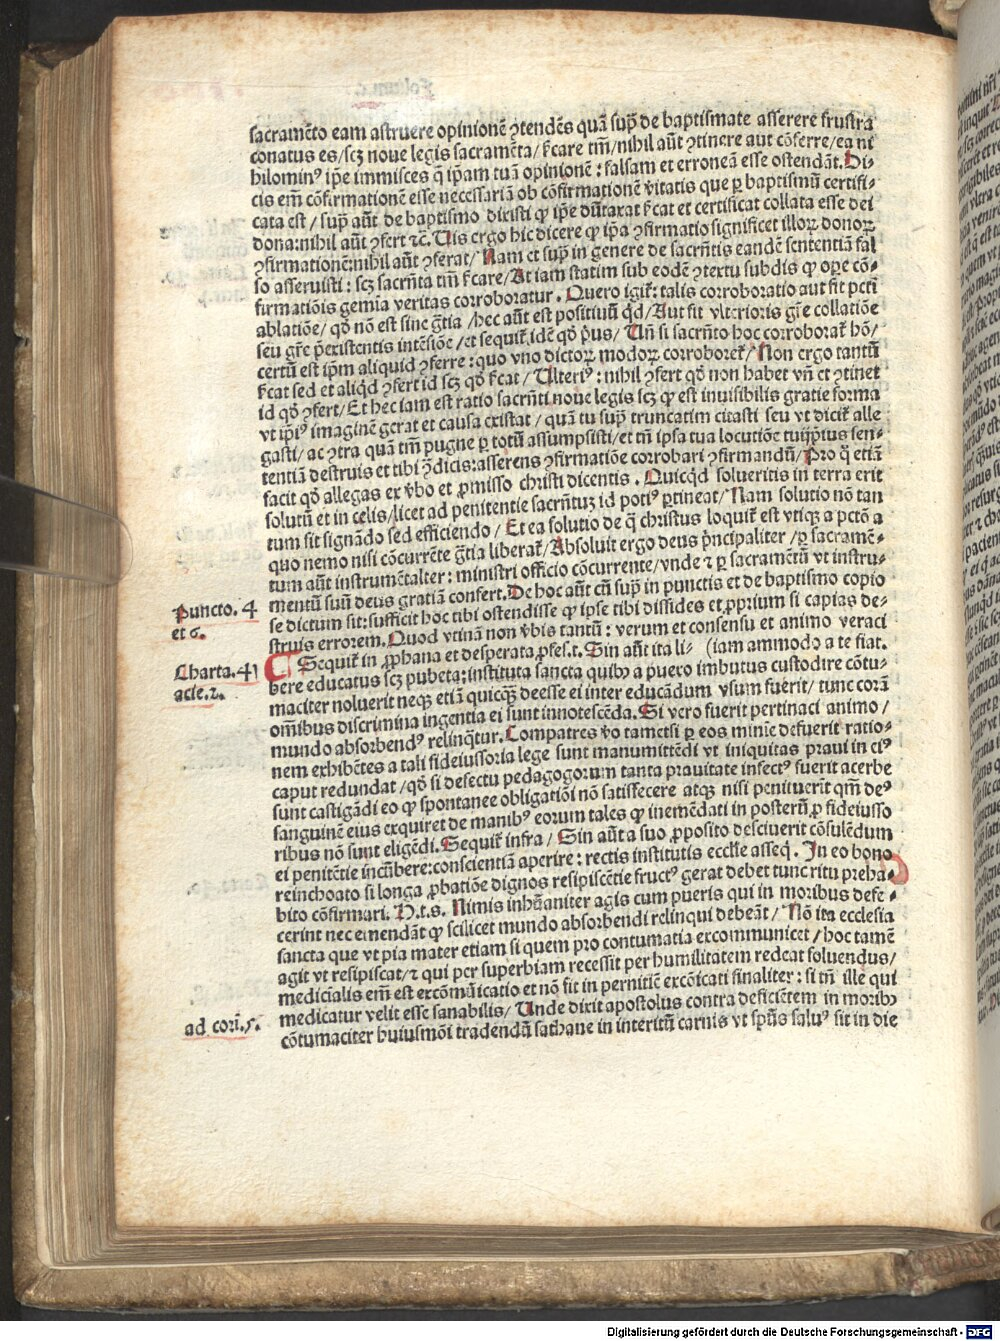 sacramēto eam astruere opinionē ꝯtendēs quā sup̄ de baptismate asserere frustra
conatus es/scꝫ noue legis sacramēta/ſ̄care tm̄/nihil aūt ꝯtinere aut cōferre/ea ni
hilominꝰ ip̄e immisces q̄ ip̄am tuā opinionē: falsam et erroneā esse ostendāt. Di-
cis em̄ cōfirmationē esse necessariā ob cōfirmationē v̄itatis que ꝑ baptismū certifi-
cata est/ sup̄ aūt de baptismo dixisti ꝙ ip̄e dūtaxat ſ̄cat et certificat collata esse dei
dona: nihil aūt ꝯfert ⁊c̄. Uis ergo hic dicere ꝙ ip̄a ꝯfirmatio significet illoꝝ donoꝝ
ꝯfirmationē: nihil aūt ꝯferat/ Nam et sup̄ in genere de sacrn̄tis eandē sententiā fal
so asseruisti: scꝫ sacrn̄ta tm̄ ſ̄care/ At iam statim sub eodē ꝯtextu subdis ꝙ ope cō-
firmatiōis gemia veritas corroboratur. Quero igit̄: talis corroboratio aut fit pcti
ablatiōe/ qd̄ nō est sine gr̄tia/hec aūt est positiuū qd̄/Aut fit vlterioris gr̄e collatiōe
seu gr̄e p̄existentis intēsiōe/et sequit̄ idē qd̄ p̄us/ Un̄ si sacrn̄to hoc corroborat̄ hō/
certū est ip̄m aliquid ꝯferre: quo vno dictoꝝ modoꝝ corroboret̄/ Non ergo tantū
ſ̄cat sed et aliqd ꝯfert id scꝫ qd̄ ſ̄cat/ Ulteriꝰ: nihil ꝯfert qd̄ non habet vn̄ et ꝯtinet
id qd̄ ꝯfert/ Et hec iam est ratio sacrn̄ti noue legis scꝫ ꝙ est inuisibilis gratie forma
vt ip̄iꝰ imaginē gerat et causa existat/ quā tu sup̄ truncatim citasti seu vt dicit̄ alle
gasti/ ac ꝯtra quā tm̄ pugne ꝑ totū assumpsisti/et tn̄ ipsa tua locutiōe tuijp̄ius sen-
tentiā destruis et tibi ꝯ̄dicis: asserens ꝯfirmatiōe corrobari ꝯfirmandū/ Pro q̄ etiā
facit qd̄ allegas ex v̄bo et ꝓmisso christi dicentis. Quicqd̄ solueritis in terra erit
solutū et in celis/licet ad penitentie sacrn̄tuꝫ id potiꝰ ꝑtineat/ Nam solutio nō tan
tum sit signādo sed efficiendo/ Et ea solutio de q̄ christus loquit̄ est vtiqꝫ a pctō a
quo nemo nisi cōcurrēte gr̄tia liberat̄/Absoluit ergo deus p̄ncipaliter/ ꝑ sacramē-
tum aūt instrumētalter: ministri officio cōcurrente/vnde ⁊ ꝑ sacramētū vt instru-
mentū suū deus gratiā confert. De hoc aūt cū sup̄ in punctis et de baptismo copio
se dictum sit: sufficit hoc tibi ostendisse ꝙ ipse tibi dissides et ꝓprium si capias de-
struis errorem. Quod vtinā non v̄bis tantū: verum et consensu et animo veraci
Puncto. 4
et 6.
Charta. 41
acie. 2.
Sequit̄ in ꝓphana et desperata ꝓfes.t. Sin aūt ita li- (iam ammodo a te fiat.
bere educatus scꝫ pubeta: instituta sancta quibꝫ a puero imbutus custodire cōtu-
maciter noluerit neqꝫ etiā quicqꝫ deesse ei inter educādum vsum fuerit/ tunc corā
om̄ibus discrimina ingentia ei sunt innotescēda. Si vero fuerit pertinaci animo/
mundo absorbendꝰ relinq̄tur. Compatres v̄o tametsi ꝑ eos minīe defuerit ratio-
nem exhibētes a tali fideiussoria lege sunt manumittēdi vt iniquitas praui in ciꝰ
caput redundat/qd̄ si defectu pedagogorum tanta prauitate infectꝰ fuerit acerbe
sunt castigādi eo ꝙ spontanee obligatiōi nō satisfecere atqꝫ nisi penituerit qm̄ deꝰ
sanguinē eius exquiret de manibꝰ eorum tales ꝙ inemēdati in posterū ꝓ fideiusso
ribus nō sunt eligēdi. Sequit̄ infra/ Sin aūt a suo ꝓposito desciuerit cōsulēdum
ei penitētie incūbere: conscientiā aperire: rectis institutis eccl̄ie asseq̄. In eo bono
reinchoato si longa ꝓbatiōe dignos resipiscētie fructꝰ gerat debet tunc ritu preha-
bito cōfirmari. H.t.s. Nimis inhūaniter agis cum pueris qui in moribus defe-
cerint nec emendāt ꝙ scilicet mundo absorbendi relinqui debeāt/ Nō ita ecclesia
sancta que vt pia mater etiam si quem pro contumatia excommunicet/ hoc tamē
agit vt resipiscat/⁊ qui per superbiam recessit per humilitatem redeat soluendus/
medicīalis em̄ est excōmūicatio et nō fit in pernitiē excōicati finaliter: si tn̄ ille qui
medicatur velit esse sanabilis/ Unde dixit apostolus contra deficiētem in moribꝫ
ad cori. 5.
cōtumaciter huiusmōi tradendū sathane in interitū carnis vt sp̄ūs saluꝰ sit in die
Digitalisierung gefördert durch die Deutsche Forschungsgemeinschaft - DFG